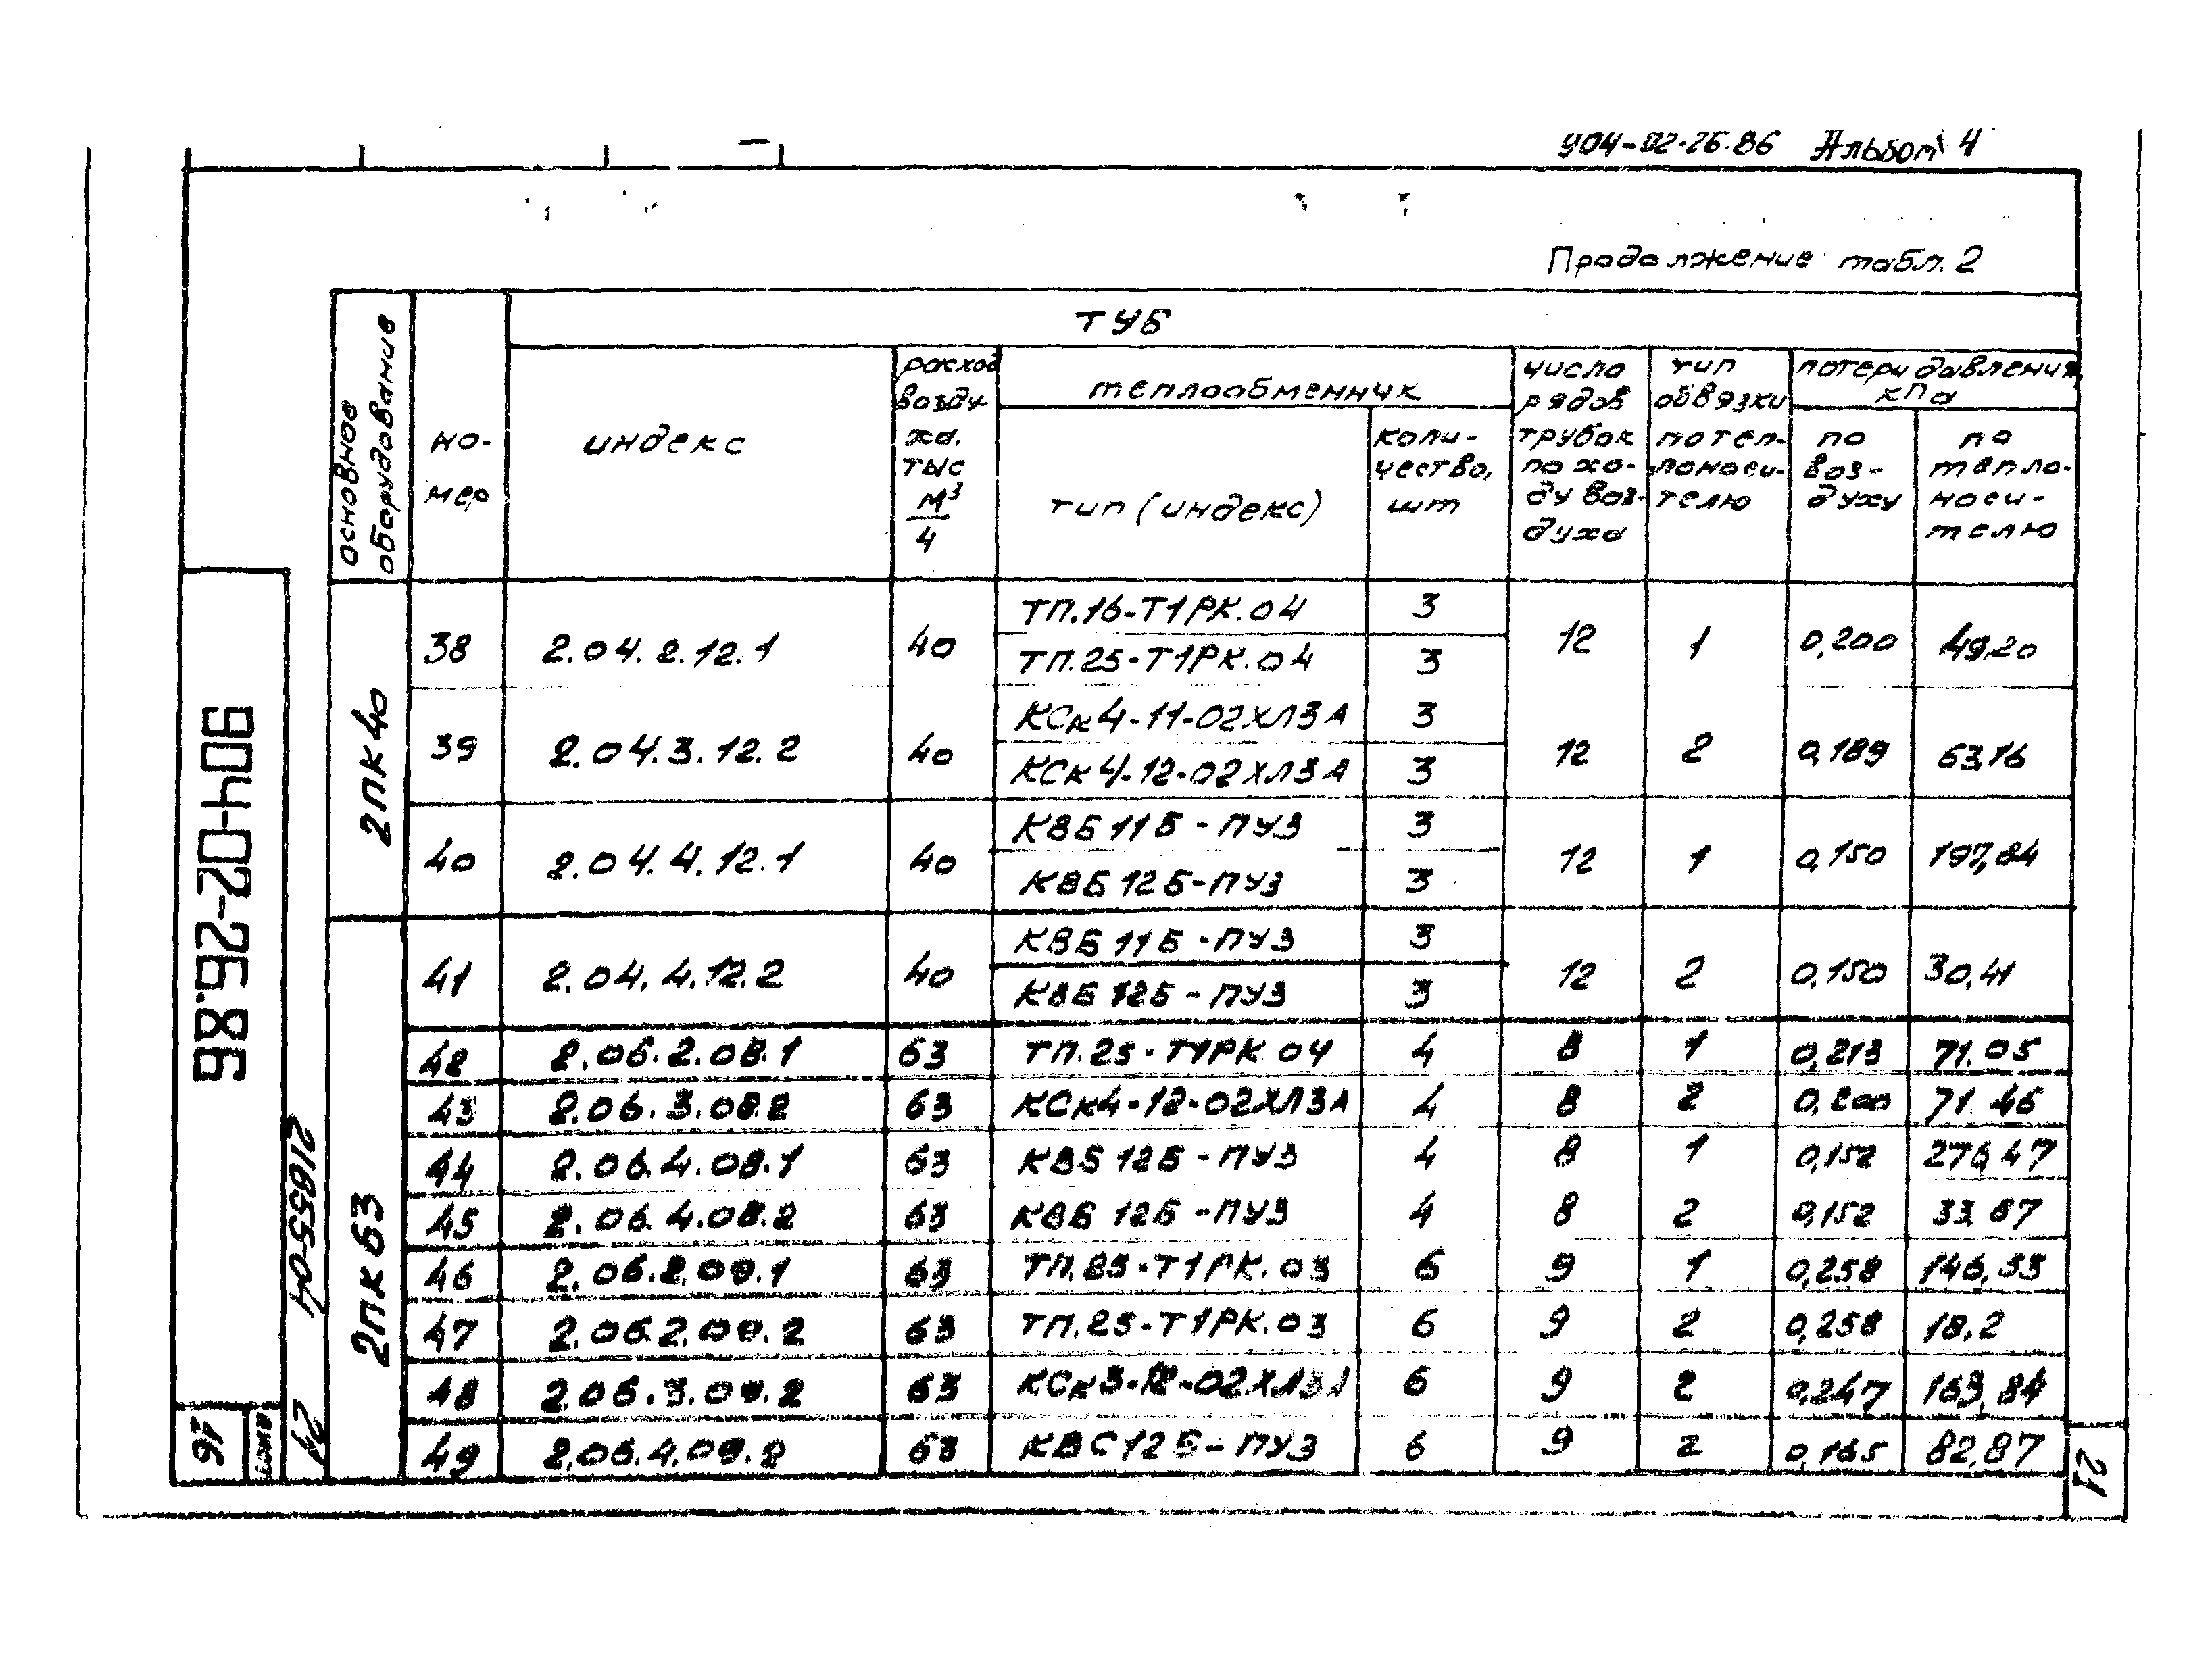 904-02-26.86 Альбом 4
Продолжение табл. 2
основное оборудование
но-
мер
ТУБ
индекс
расход
возду-
ха.
тыс
м³
ч
теплообменник
тип (индекс)
коли-
чество,
шт
число
рядов
трубок
по хо-
ду воз-
духа
тип
обвязки
потеп-
лоноси-
телю
потери давления,
кПа
по
воз-
духу
по
тепло-
носи-
телю
2ПК40
38 2.04.2.12.1 40 ТП.16-Т1РК.04 3 12 1 0,200 49,20
ТП.25-Т1РК.04 3
39 2.04.3.12.2 40 КСк4-11-02ХЛ3А 3 12 2 0,189 63,16
КСк4-12-02ХЛ3А 3
40 2.04.4.12.1 40 КВБ11Б-ПУ3 3 12 1 0,150 197,84
КВБ12Б-ПУ3 3
2ПК63
41 2.04.4.12.2 40 КВБ11Б-ПУ3 3 12 2 0,150 30,41
КВБ12Б-ПУ3 3
42 2.06.2.08.1 63 ТП.25-Т1РК.04 4 8 1 0,213 71.05
43 2.06.3.08.2 63 КСк4-12-02ХЛ3А 4 8 2 0,200 71.46
44 2.06.4.08.1 63 КВБ12Б-ПУ3 4 8 1 0,152 276,47
45 2.06.4.08.2 63 КВБ12Б-ПУ3 4 8 2 0,152 33,67
46 2.06.2.09.1 63 ТП.25-Т1РК.03 6 9 1 0,258 146,33
47 2.06.2.09.2 63 ТП.25-Т1РК.03 6 9 2 0,258 18,2
48 2.06.3.09.2 63 КСк3-12-02ХЛ3А 6 9 2 0,247 163,84
49 2.06.4.09.2 63 КВС12Б-ПУ3 6 9 2 0,165 82,87
904-02-26.86
21855-04
21
16
лист
21